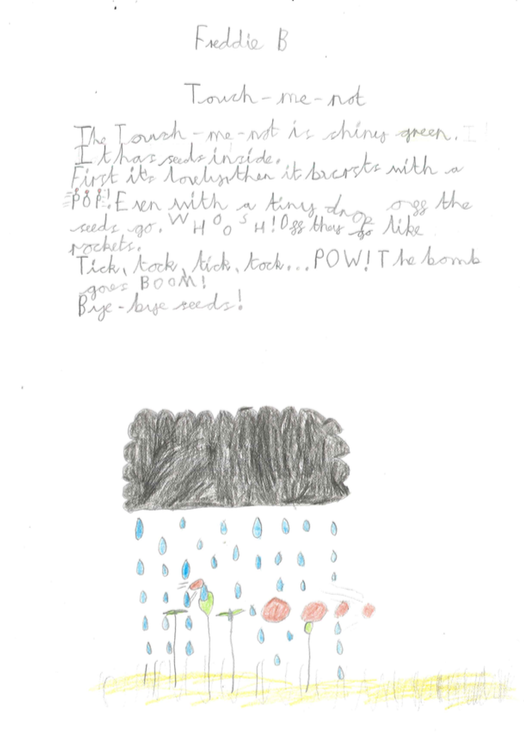 Freddie B
Touch-me-not
The Touch-me-not is shiny green.
It has seeds inside.
First it's lonley then it bursts with a
POP! Even with a tiny drop off the
seeds go. WHOOSH! Off they go like
rockets.
Tick, tock, tick, tock... POW! The bomb
goes BOOM!
Bye-bye seeds!